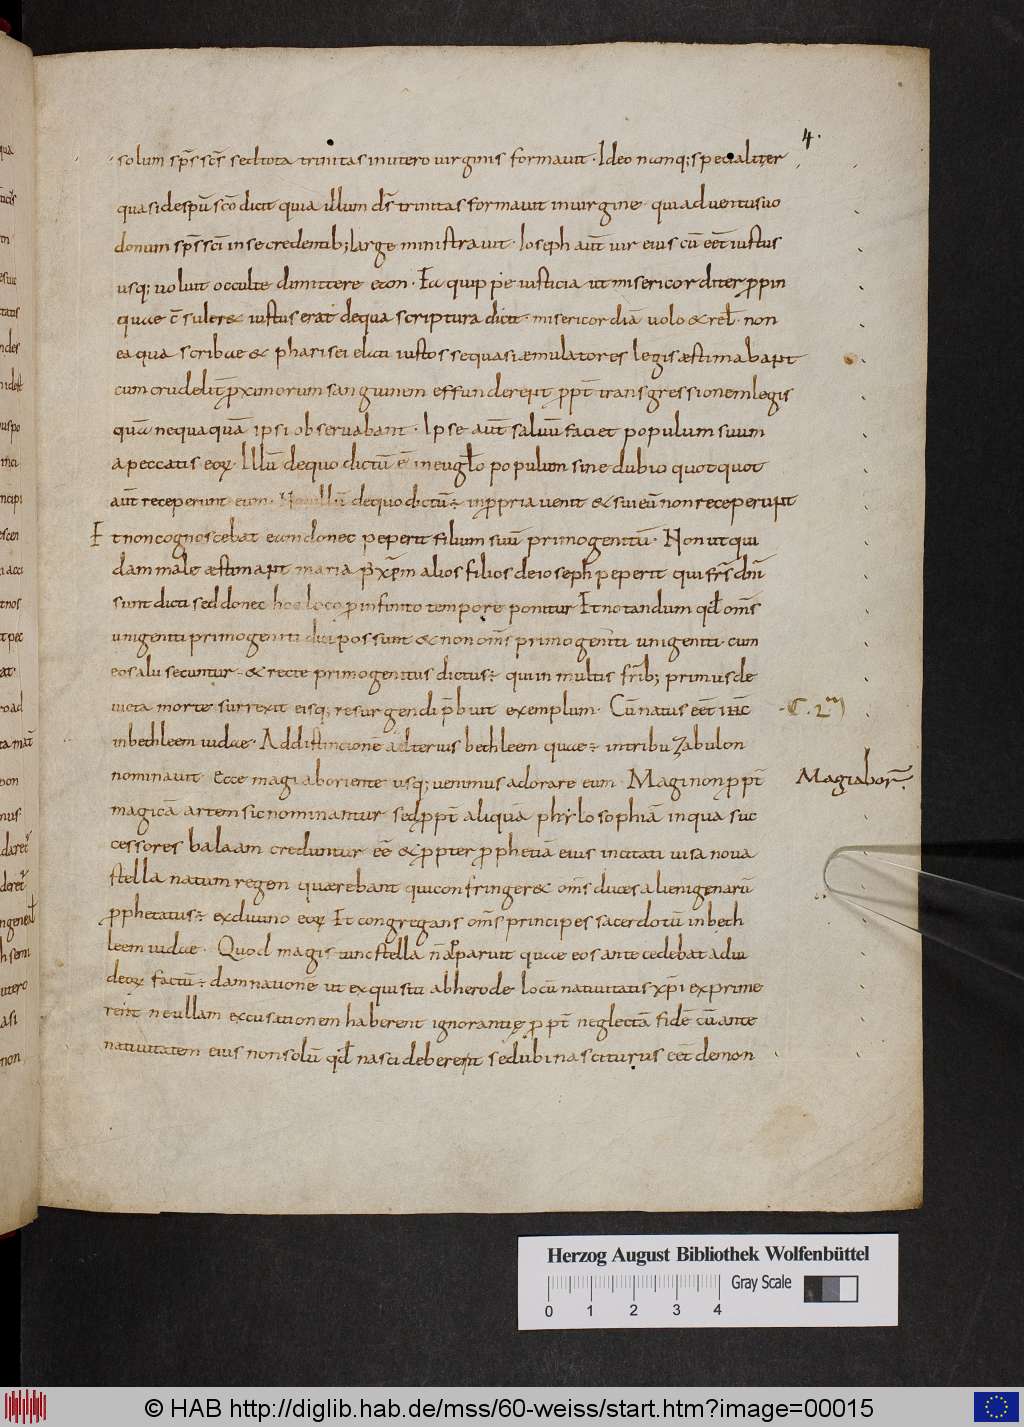 4.
solum sp̄s sc̄s sed tota trinitas in utero uirginis formauit. Ideo nunq; specialiter
quasi de sp̄u sc̄o dicit quia illum ds̄ trinitas formauit in uirgine. qui aduentu suo
donum sp̄s sc̄i in se credentib; large ministrauit. Ioseph aut̄ uir eius cū eēt iustus
usq; uoluit occulte dimittere eam. Ea quippe iusticia ut misericorditer ꝓpin
quae c̄suler& iustus erat de qua scriptura dicit. misericordiā uolo & rel̄. non
ea qua scribae & pharisei elati iustos se quasi aemulatores legis aestimabant
cum crudelit̄ ꝓximorum sanguinem effunderent ꝓpt̄ transgressionem legis
quā nequaquā ipsi obseruabant. Ipse aut̄ saluū faciet populum suum
a peccatis eoꝝ. Illū de quo dictū ē in eugl̄o populum sine dubio quotquot
aut̄ receperunt eum. Non illū de quo dictū ÷ in ꝓpria uenit & sui eū non receperunt
Et non cognoscebat eam donec peperit filium suū primogenitū. Non ut qui
dam male aestimant maria p̄ xp̄m alios filios de ioseph peperit qui frs̄ dn̄i
sunt dicti sed donec hoc loco ꝓ infinito tempore ponitur Et notandum qd̄ oms̄
unigeniti primogeniti dici possunt & non oms̄ primogeniti unigeniti. cum
eos alii secuntur. & recte primogenitus dictus ÷ qui in multis fr̄ib; primus de
uicta morte surrexit eisq; resurgendi p̄buit exemplum. Cū natus eēt ihc̄
C. 2
in bethleem iudae. Ad distincionē alterius bethleem quae ÷ in tribu zabulon
nominauit. Ecce magi ab oriente usq; uenimus adorare eum. Magi non ꝓpt̄
Magi ab or̄.
magicā artem sic nominantur sed ꝓpt̄ aliquā phylosophiā in qua suc
cessores balaam creduntur eē & ꝓpter ꝓphetiā eius incitati uisa noua
stella natum regem quaerebant qui confringer& oms̄ duces alienigenarū
ꝓphetatus ÷ ex diuino eoꝝ Et congregans oms̄ principes sacerdotū in beth
leem iudae. Quod magis tunc stella n̄ apparuit quae eos antecedebat ad iu
deoꝝ factū ÷ damnationē ut exquisiti ab herode locū natiuitatis xp̄i exprime
rent ne ullam excusationem haberent ignorantię ꝓpt̄ neglectā fidē cū ante
natiuitatem eius non solū qd̄ nasci deberent sed ubi nasciturus eēt demon
Herzog August Bibliothek Wolfenbüttel
Gray Scale
0 1 2 3 4
© HAB http://diglib.hab.de/mss/60-weiss/start.htm?image=00015